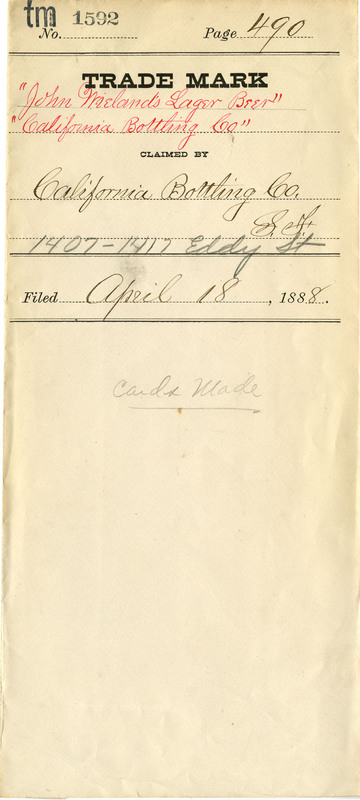 tm 1592
No. Page 490
TRADE MARK
"John Wieland's Lager Beer"
"California Bottling Co"
CLAIMED BY
California Bottling Co.
S.F.
1407-1417 Eddy St
Filed April 18, 1888.
Cards Made